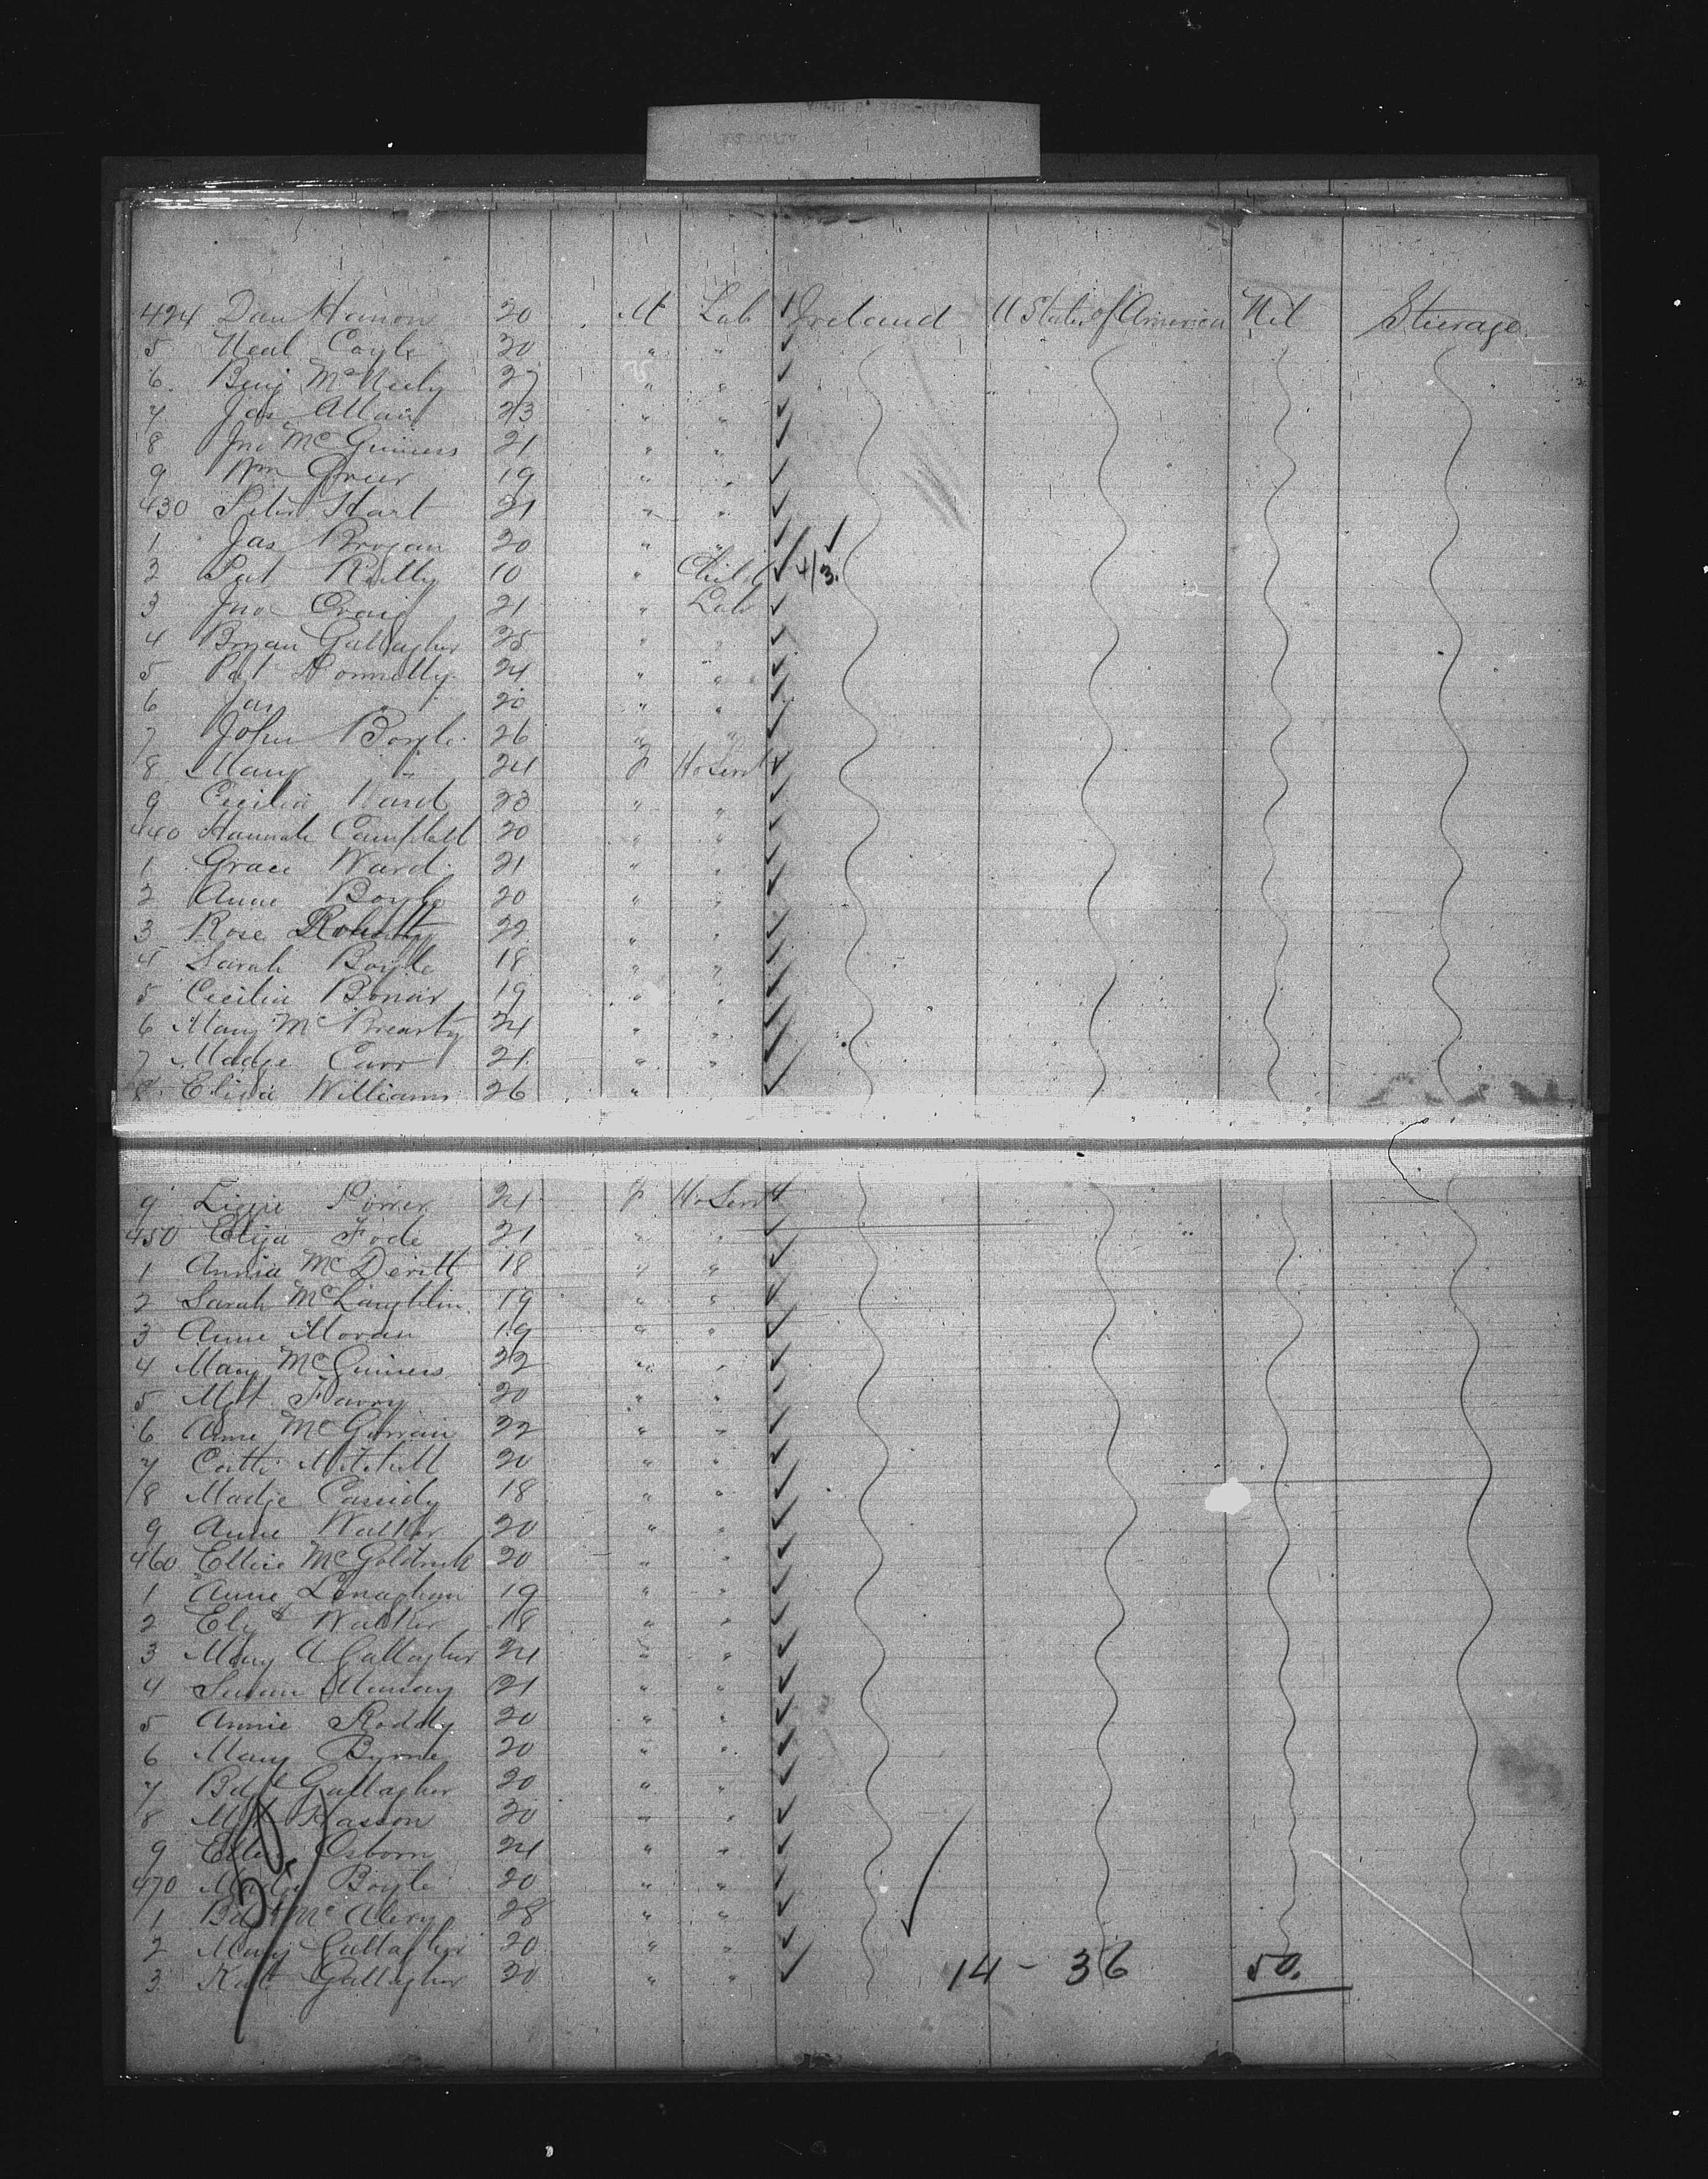 424 Dan Hanon 20 M Lab Ireland U States of America Nil Steerage
5 Neal Coyle 30 " "
6 Benj McNeely 27 " "
7 Jas Allan 23 " "
8 Jno McGuiness 21 " "
9 Wm Greer 19 " "
430 Peter Hart 21 " "
1 Jas Brogan 20 " "
2 Pat Reilly 10 " Child
3 Jno Craig 21 " Lab
4 Bryan Gallagher 25 " "
5 Pat Donnelly 24 " "
6 Jas " 20 " "
7 John Boyle 26 " "
8 Mary " 24 F Ho Servt
9 Cecilia Ward 23 " "
440 Hannah Campbell 20 " "
1 Grace Ward 21 " "
2 Anne Boyle 20 " "
3 Rose 22 " "
4 Sarah Boyle 18 " "
5 Cecilia Bonar 19 " "
6 Mary McBrearty 24 " "
7 Madge Carr 21 " "
8 Eliza Williams 26 "
9 Lizzie Power 24 F Ho Servt
450 Eliza Fode 21 " "
1 Annie McDevitt 18 " "
2 Sarah McLaughlin 19 " "
3 Anne Moran 19 " "
4 Mary McGuiness 22 " "
5 Mgt 20 " "
6 Anne 22 " "
7 Cath Mitchell 20 " "
8 Madge Cassidy 18 " "
9 Anne Walker 20 " "
460 Ellie McGoldrick 20 " "
1 Anne Lenaghan 19 " "
2 Elizth Walker 18 " "
3 Mary A Gallagher 24 " "
4 Susan Murray 21 " "
5 Annie Roddy 20 " "
6 Mary Byrne 20 " "
7 Bdgt Gallagher 20 " "
8 Mgt 20 " "
9 Ellen Osborn 24 " "
470 Boyle 20 " "
1 Bdgt 28 " "
2 Mary Gallagher 20 " "
3 Kate Gallagher 20 " "
14 - 36 50.